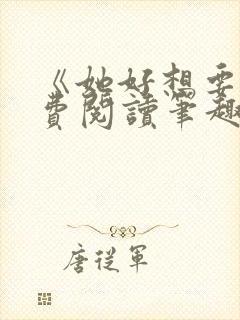 《她好想要
費閱讀筆趣
唐從軍